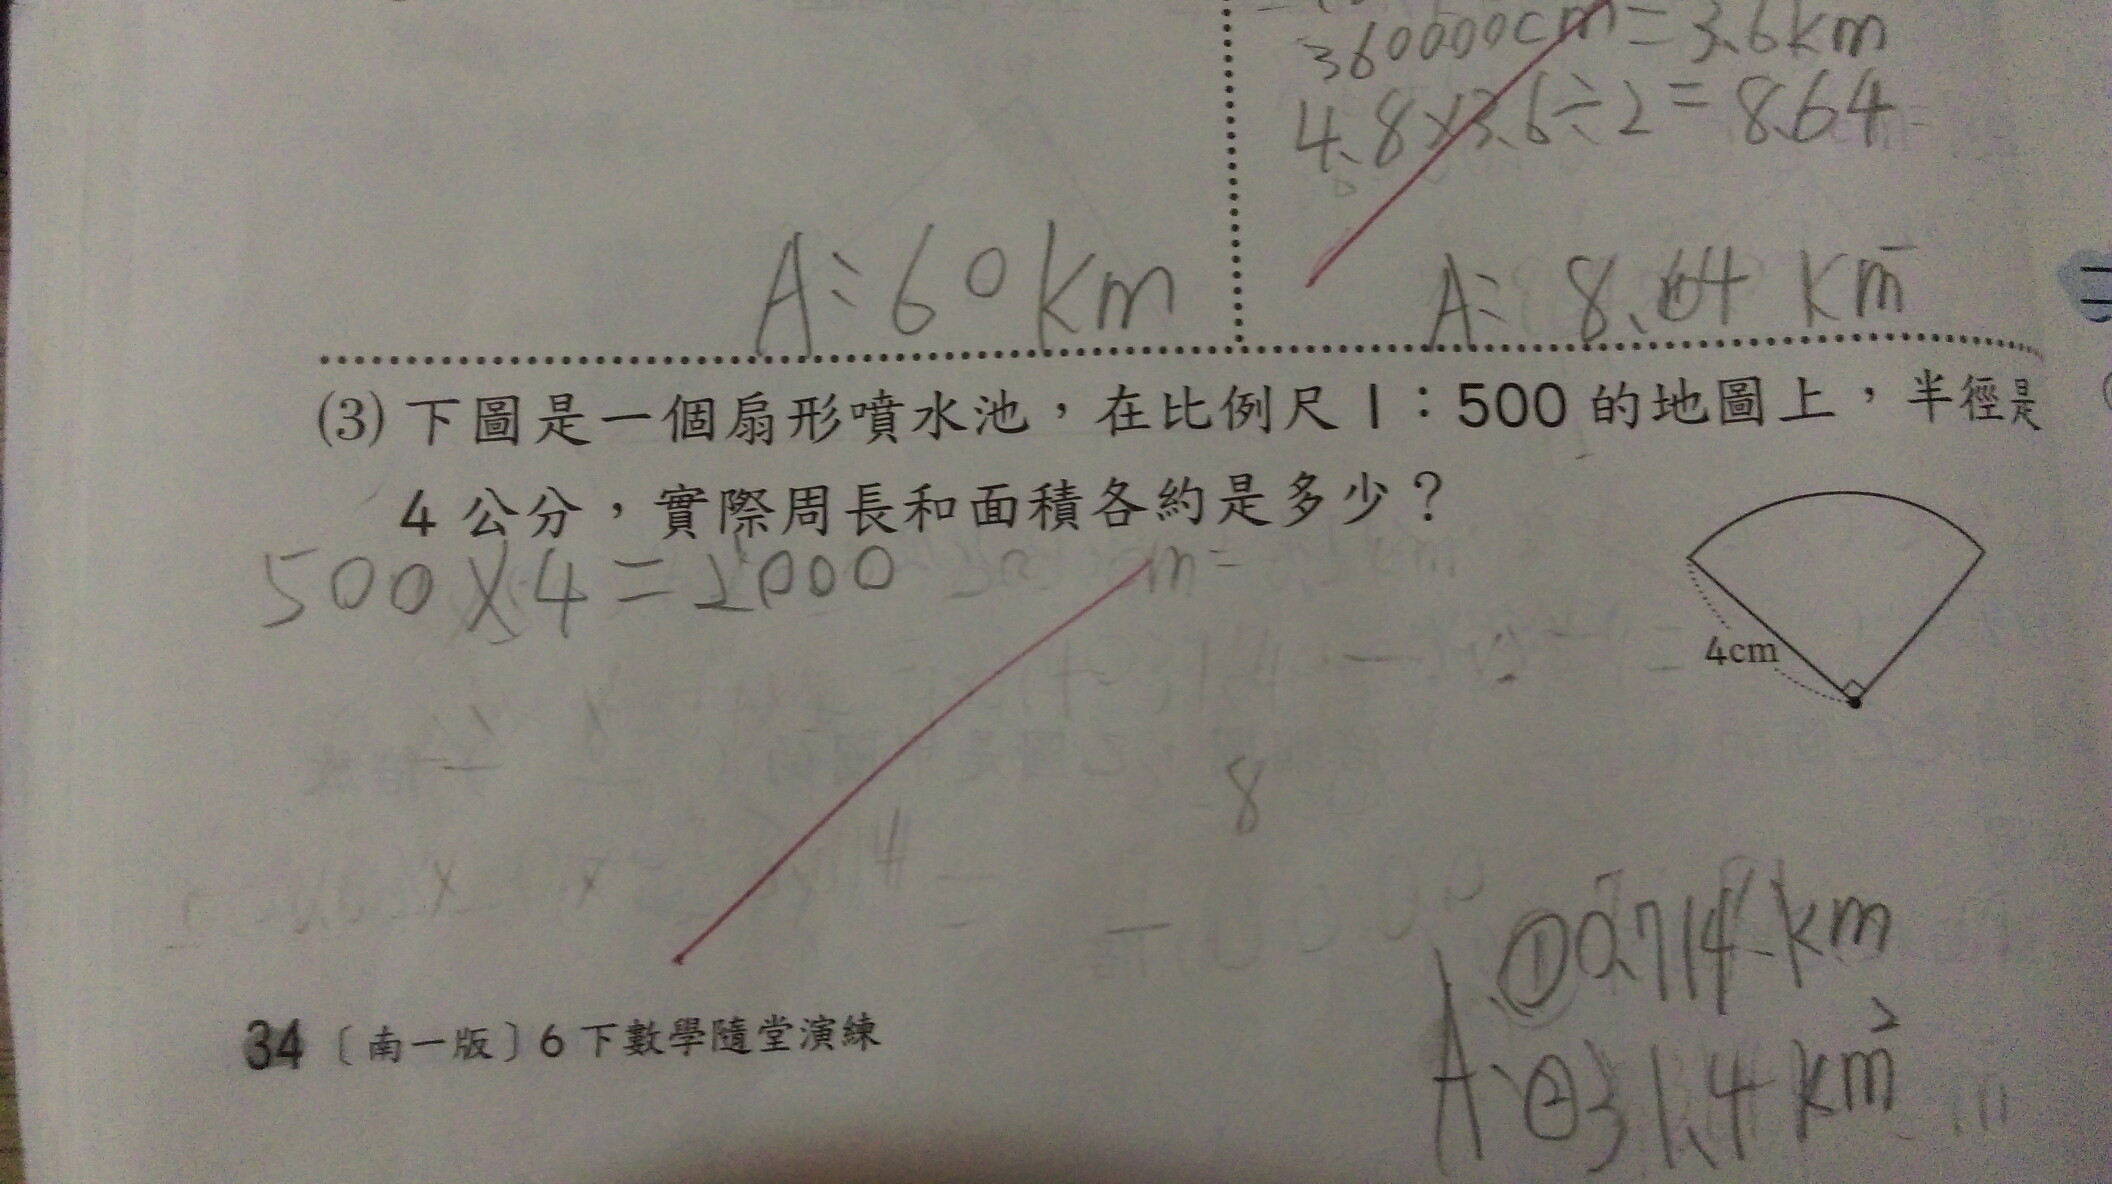 360000cm=3.6km
4.8×3.6÷2=8.64
A:60km
A:8.64 km²
(3) 下圖是一個扇形噴水池，在比例尺 1：500 的地圖上，半徑是
4 公分，實際周長和面積各約是多少？
500×4=2000
4cm
8
A:①0.714km
A:②31.4km²
34〔南一版〕6 下數學隨堂演練